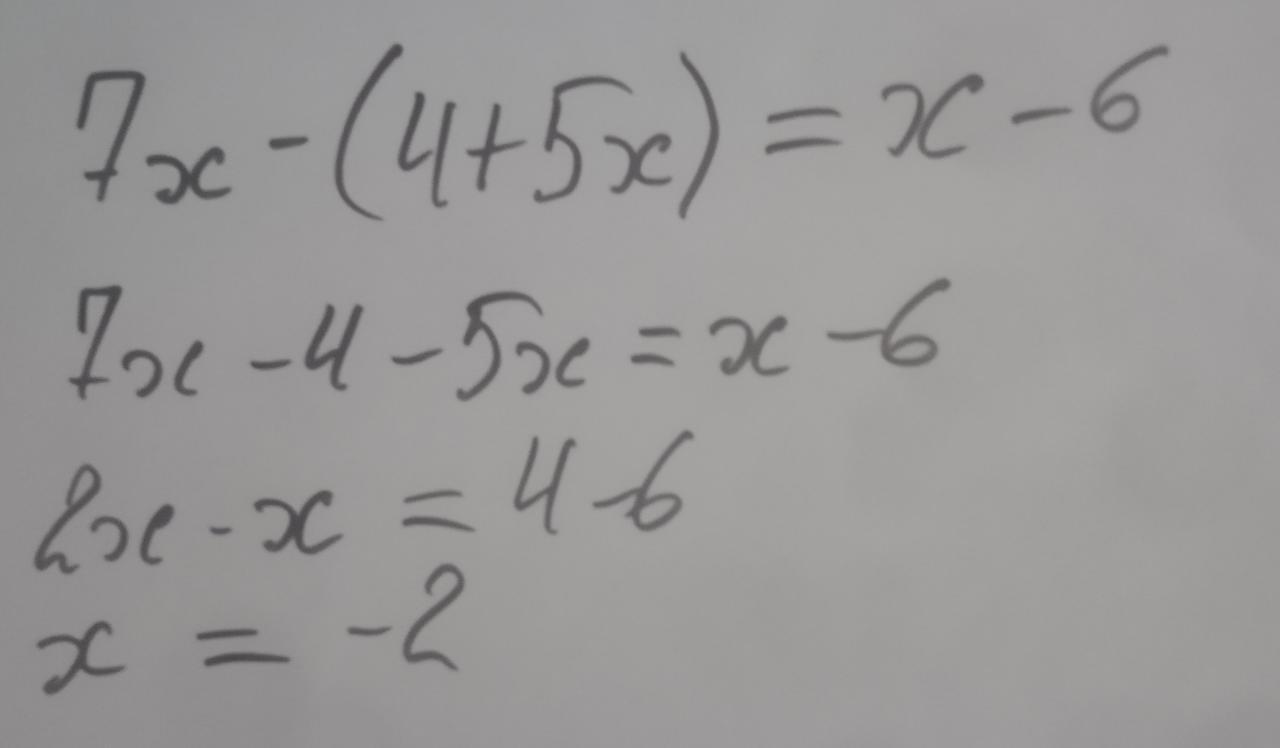 7x - (4+5x) = x - 6
7x - 4 - 5x = x - 6
2x - x = 4 - 6
x = -2